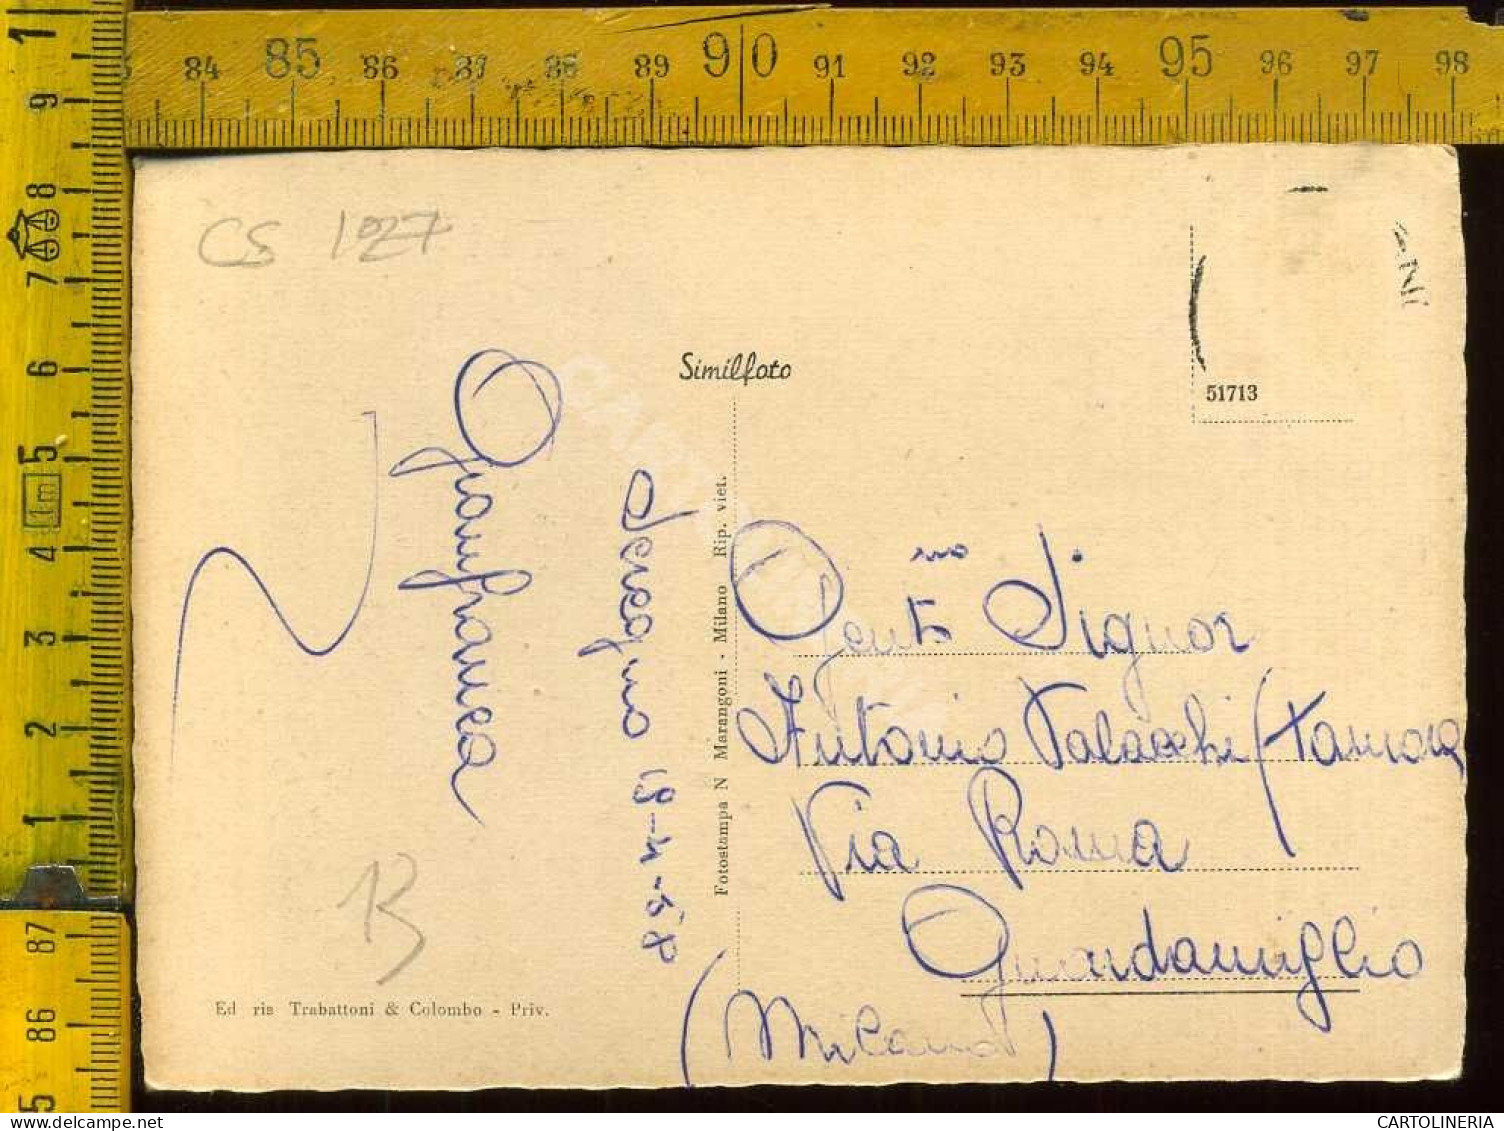 1
9
8
7
6
5
1m
4
3
2
1
87
86
85
84 85 86 87 88 89 90 91 92 93 94 95 96 97 98
CS 1027
Similfoto
51713
Gianfranca
Seregno 19-4-58
Fotostampa N Marangoni - Milano Rip. viet.
Gent.mo Signor
Antonio
Via Roma
Guardamiglio
(Milano)
13
Ed ris Trabattoni & Colombo - Priv.
CARTOLINERIA